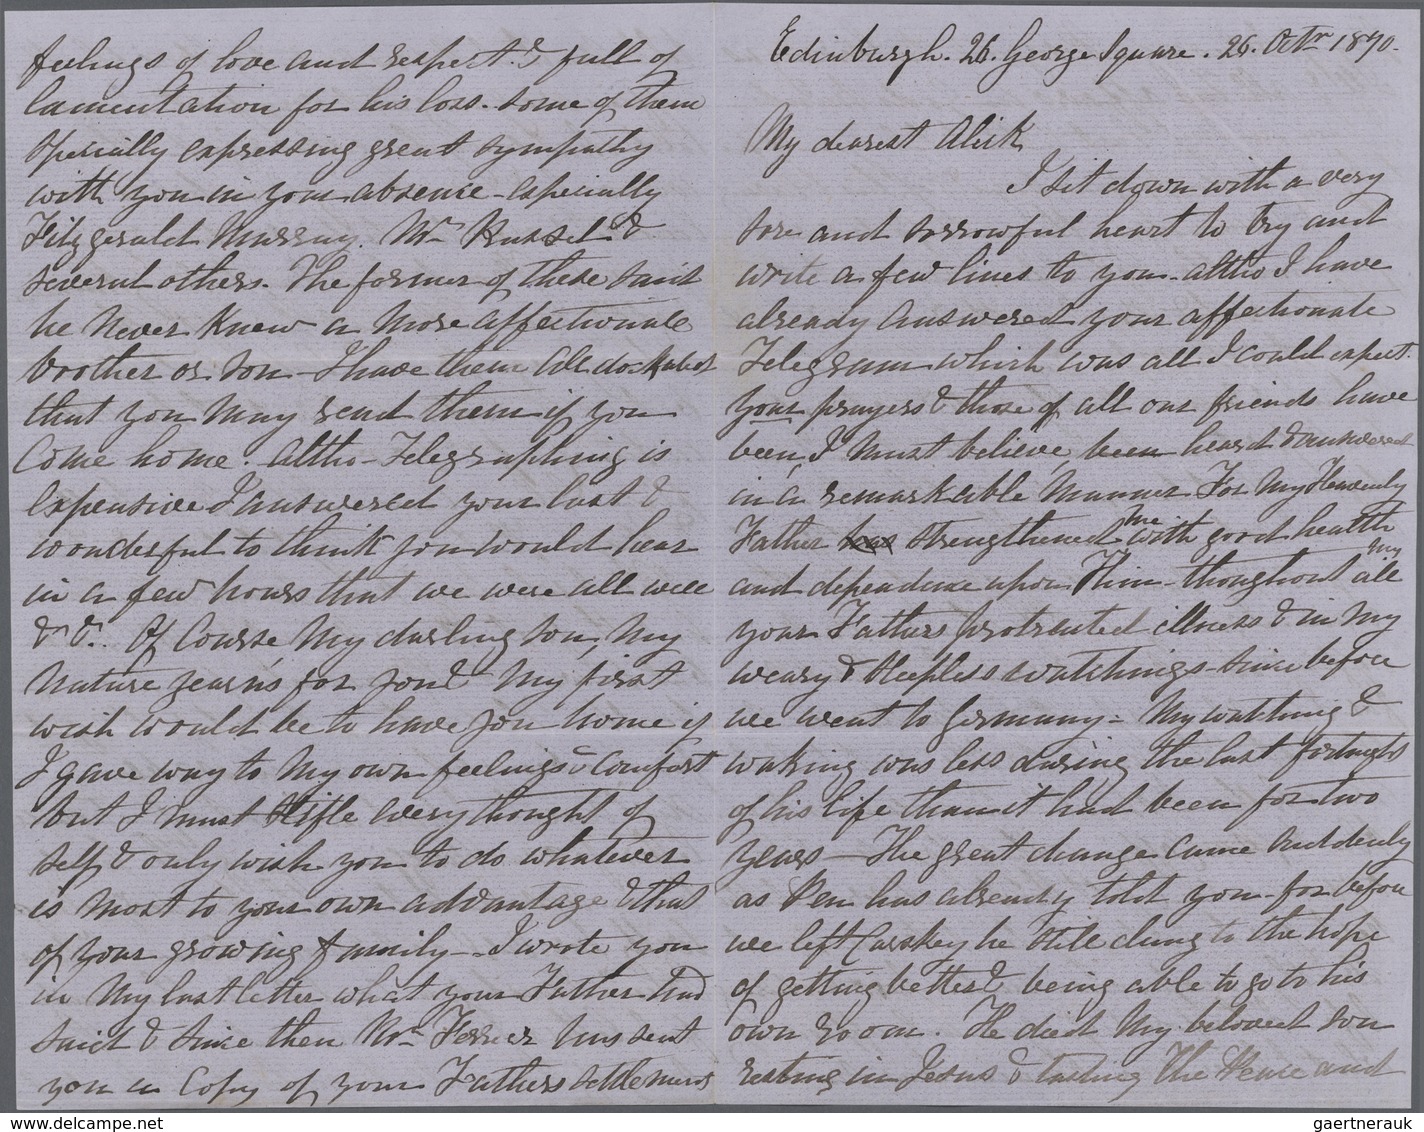 Edinburgh. 26. George Square. 26. Octr 1870.
My dearest Alick
I sit down with a very
sore and sorrowful heart to try and
write a few lines to you - altho I have
already answered your affectionate
Telegram which was all I could expect.
Your prayers & those of all our friends have
been, I must believe, been heard & answered
in a remarkable manner For My Heavenly
Father has strengthened me with good health
and dependance upon Him - thoughout all my
your Fathers protracted illness & in my
weary & sleepless watchings - since before
we went to Germany - My watching &
waking was less during the last fortnight
of his life than it had been for two
years - The great change came suddenly
as Pen has already told you - for before
we left Carskey he still clung to the hope
of getting better & being able to go to his
own room. He died My beloved son
resting in Jesus & tasting The Peace and
feelings of love and respect. & full of
lamentation for his loss - some of them
specially expressing great sympathy
with you in your absence - especially
Fitzgerald Murray. Mr Russel &
several others. The former of these said
he never knew a more affectionate
brother or son - I have them all
that you may read them if you
come home. Altho - Telegraphing is
expensive I answered your last &
wonderful to think you would hear
in a few hours that we were all well
&c &. Of Course My darling son, my
nature yearns for you & my first
wish would be to have you home if
I gave way to my own feelings & comfort
but I must stifle every thought of
self & only wish you to do whatever
is most to your own advantage & that
of your growing family - I wrote you
in my last letter what your Father had
said & since then Mr Ferrier has sent
you a Copy of your Fathers settlement
gaertnerauk